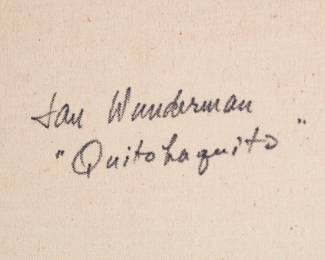 Jan Wunderman
"Quitohaquito"